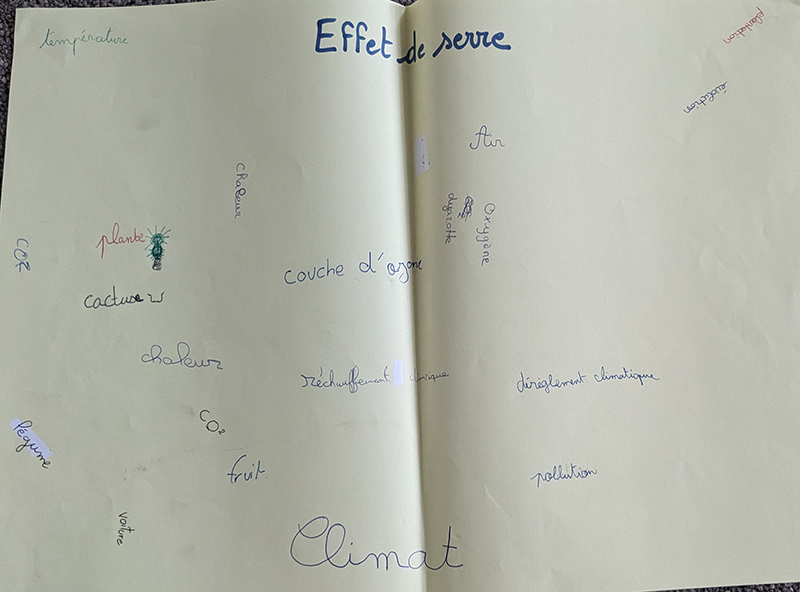 Effet de serre
température
plantation
Air
chaleur
plante
Oxygène
COR
couche d'ozone
cactuse
chaleur
réchauffement
déréglement climatique
CO2
légume
fruit
pollution
voiture
Climat